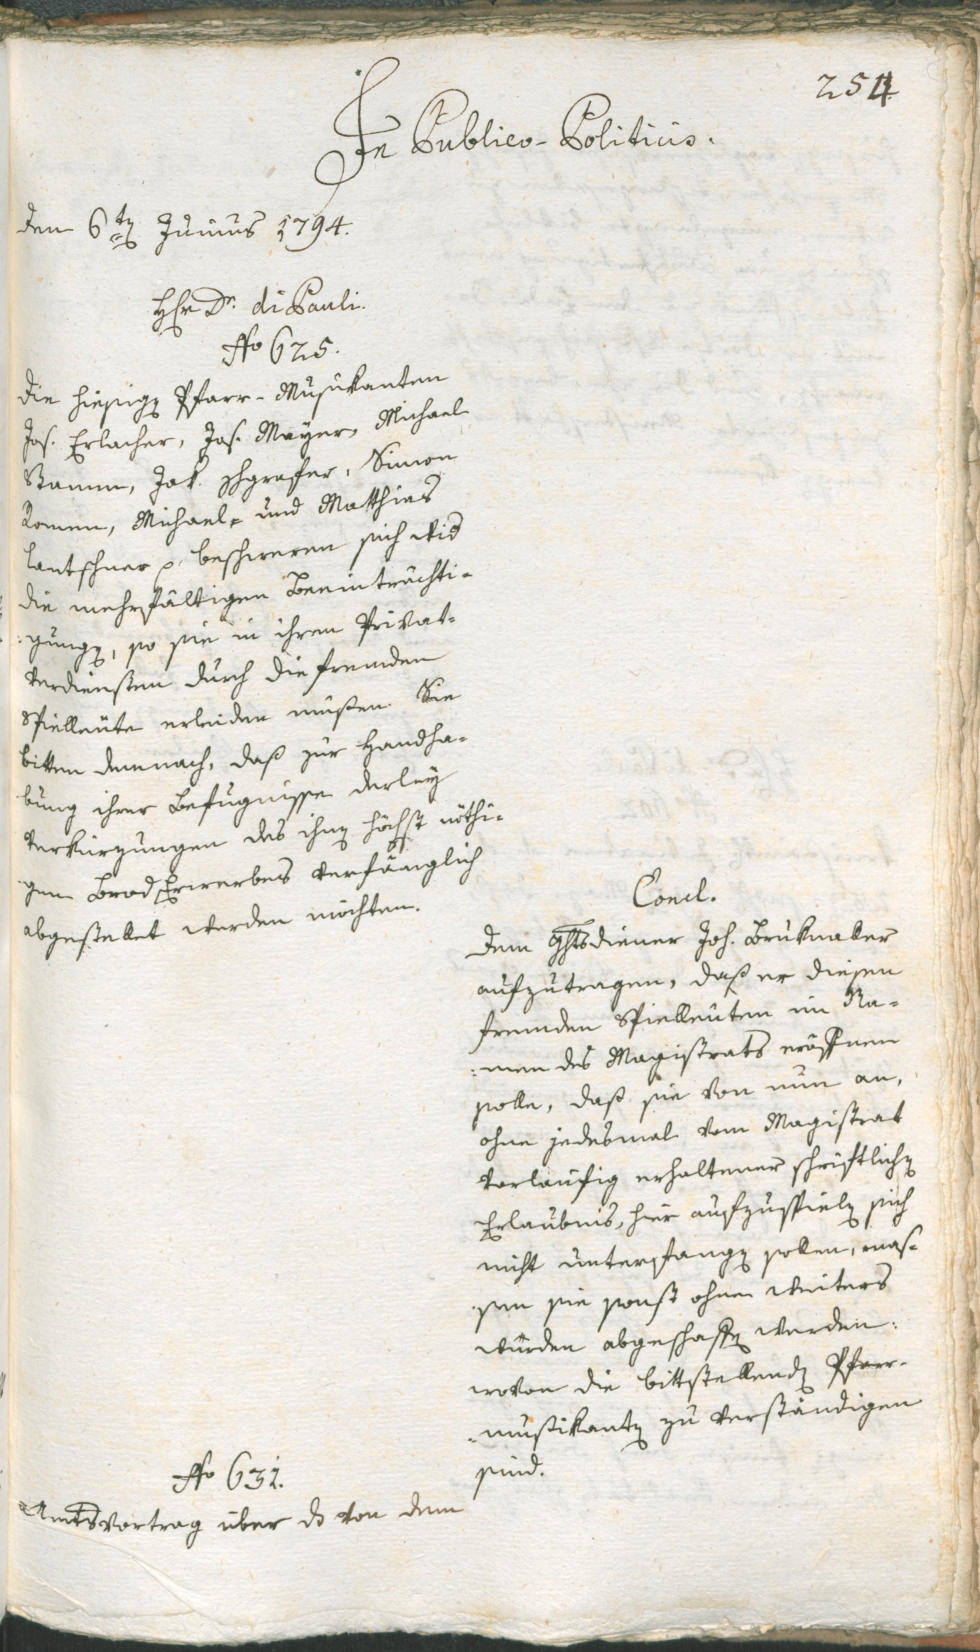 254
In Publico-Politicis.
den 6ten Junius 1794.
Hhr Dr. di Pauli.
No 625.
Die hiesigen Pfarr-Musikanten
Jos. Erlacher, Jos. Mayer, Michael
Stamm, Jak. , Simon
Romen, Michael- und Matthias
Lantschner p. beschweren sich wid
die mehrfältigen Beeinträchti-
gungen, so sie in ihren Privat-
verdiensten durch die fremden
Spielleute erleiden müßen. Sie
bitten demnach, daß zur Handha-
bung ihrer Befugnisse derley
Verkürzungen des ihnen höchst nöthi-
gen Brod Erwerbes verfänglich
abgestellet werden möchten.
Concl.
Dem Ghtsdiener Joh. Bruknaller
aufzutragen, daß er diesen
fremden Spielleuten im Na-
men des Magistrats eröffnen
solle, daß sie von nun an,
ohne jedesmal vom Magistrat
vorläufig erhaltener schriftlichen
Erlaubnis, hier aufzuspielen sich
nicht unterfangen sollen, mas-
sen sie sonst ohne weiters
würden abgeschaffen werden:
wovon die bittstellenden Pfarr-
musikanten zu verständigen
sind.
No 631.
Amtsvortrag über ds von dem